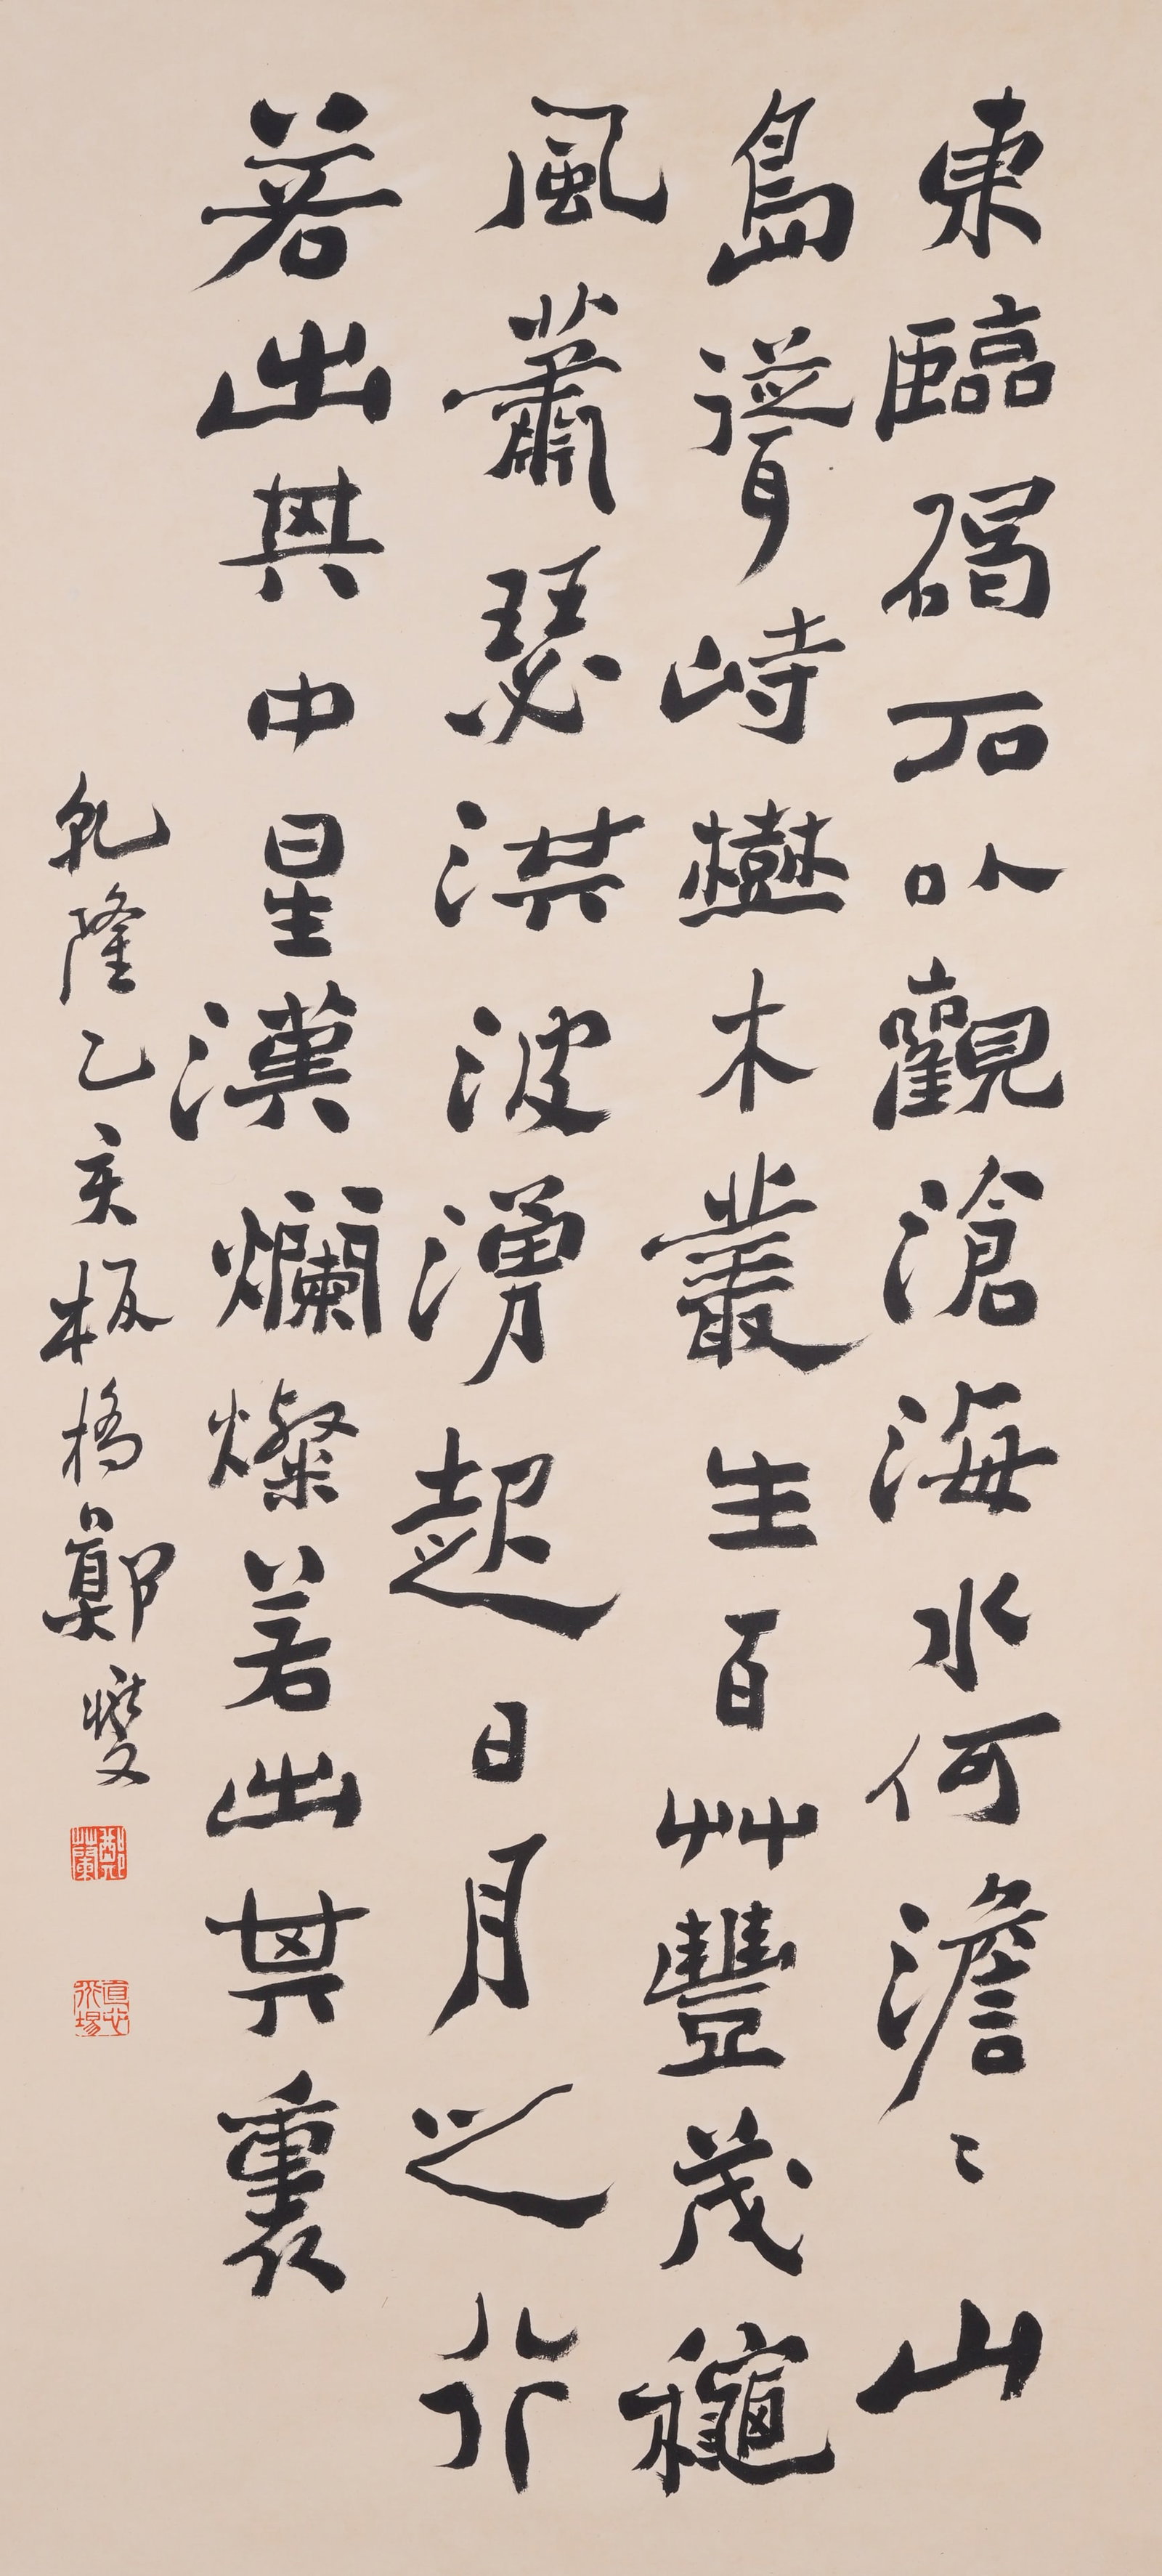 東臨碣石以觀滄海水何澹〻山
島聳峙樹木叢生百艸豐茂穐
風蕭瑟洪波湧起日月之行
若出其中星漢爛燦若出其裏
乾隆乙亥板橋鄭燮
鄭蘭
直心道場